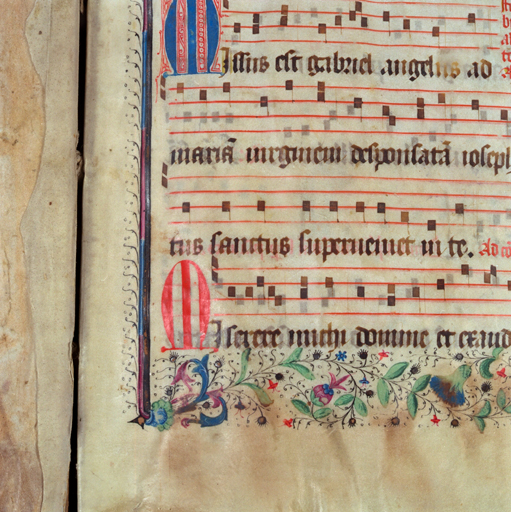 Missus est gabriel angelus ad
mariã uirginem desponsatã ioseph
tus sanctus superueniet in te. Ad
Miserere michi domine et exaud